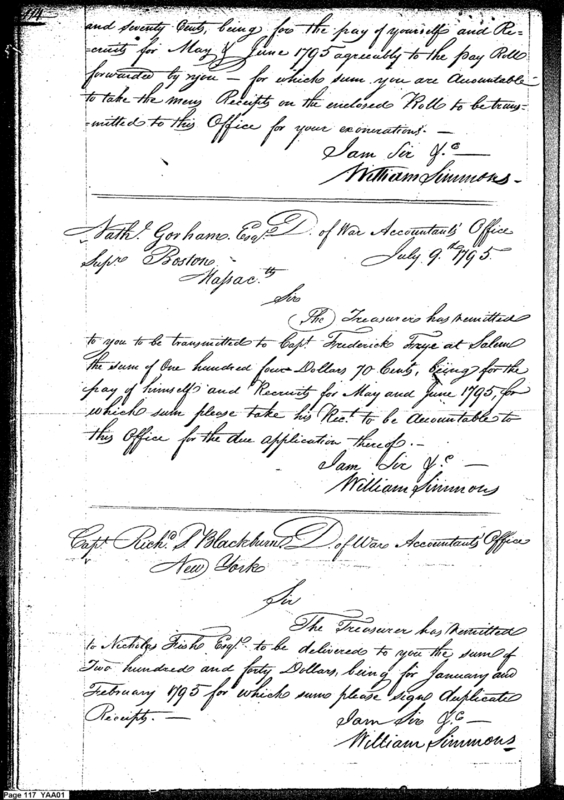 114
and seventy Cents, being for the pay of yourself and Re=
=cruits for May & June 1795 agreeably to the pay Roll
forwarded by you — for which sum you are Accountable
to take the mens Receipts on the enclosed Roll to be trans=
=mitted to this Office for your exonerations. —
I am Sir &c —
William Simmons
Nathl. Gorham Esqr. D. of War Accountants Office
Supr. Boston July 9th 1795.
Massacts
Sir
The Treasurer has remitted
to you to be transmitted to Capt. Frederick Frye at Salem
the sum of One hundred four Dollars 70 Cents, being for the
pay of himself and Recruits for May and June 1795, for
which sum please take his Rect. to be Accountable to
this Office for the due application thereof. —
I am Sir &c —
William Simmons
Capt. Richd. S. Blackburn D. of War Accountants Office
New York
Sir
The Treasurer has remitted
to Nicholas Fish Esqr. to be delivered to you the sum of
Two hundred and forty Dollars, being for January and
February 1795 for which sum please sign duplicate
Receipts. — I am Sir &c —
William Simmons
Page 117 YAA01